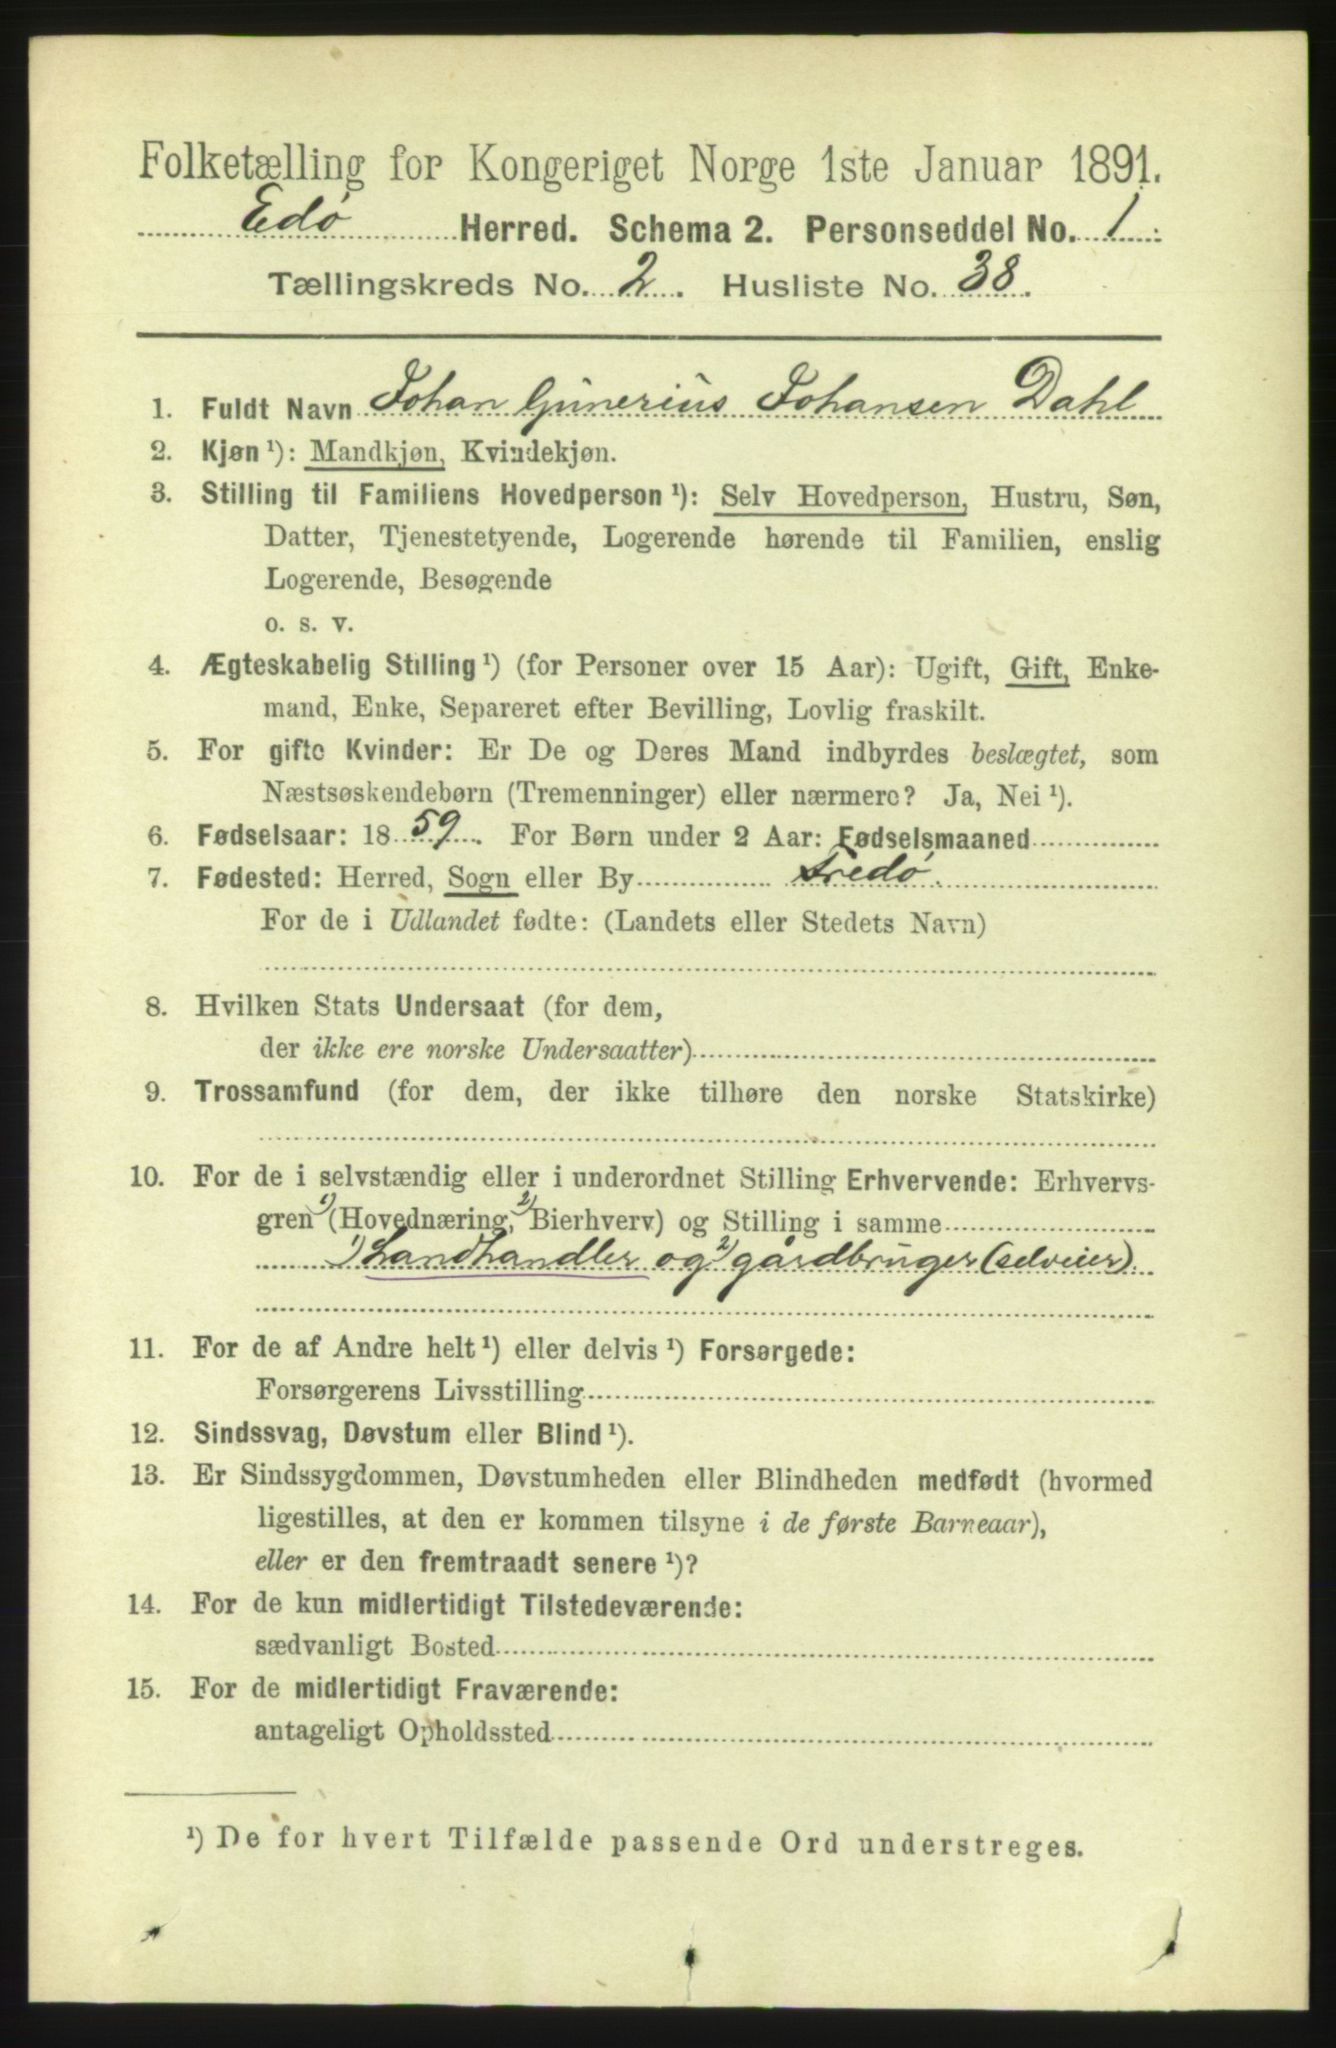 Folketælling for Kongeriget Norge 1ste Januar 1891.
Edø Herred. Schema 2. Personseddel No. 1.
Tællingskreds No. 2. Husliste No. 38.
1. Fuldt Navn Johan Gunerius Johansen Dahl
2. Kjøn ¹): Mandkjøn, Kvindekjøn.
3. Stilling til Familiens Hovedperson ¹): Selv Hovedperson, Hustru, Søn,
Datter, Tjenestetyende, Logerende hørende til Familien, enslig
Logerende, Besøgende
o. s. v.
4. Ægteskabelig Stilling ¹) (for Personer over 15 Aar): Ugift, Gift, Enke-
mand, Enke, Separeret efter Bevilling, Lovlig fraskilt.
5. For gifte Kvinder: Er De og Deres Mand indbyrdes beslægtet, som
Næstsøskendebørn (Tremenninger) eller nærmere? Ja, Nei ¹).
6. Fødselsaar: 1859. For Børn under 2 Aar: Fødselsmaaned
7. Fødested: Herred, Sogn eller By Fredø.
For de i Udlandet fødte: (Landets eller Stedets Navn)
8. Hvilken Stats Undersaat (for dem,
der ikke ere norske Undersaatter)
9. Trossamfund (for dem, der ikke tilhøre den norske Statskirke)
10. For de i selvstændig eller i underordnet Stilling Erhvervende: Erhvervs-
gren ¹) (Hovednæring, ²) Bierhverv) og Stilling i samme
¹) Landhandler og ²) gårdbruger (selveier).
11. For de af Andre helt ¹) eller delvis ¹) Forsørgede:
Forsørgerens Livsstilling
12. Sindssvag, Døvstum eller Blind ¹).
13. Er Sindssygdommen, Døvstumheden eller Blindheden medfødt (hvormed
ligestilles, at den er kommen tilsyne i de første Barneaar),
eller er den fremtraadt senere ¹)?
14. For de kun midlertidigt Tilstedeværende:
sædvanligt Bosted
15. For de midlertidigt Fraværende:
antageligt Opholdssted
¹) De for hvert Tilfælde passende Ord understreges.